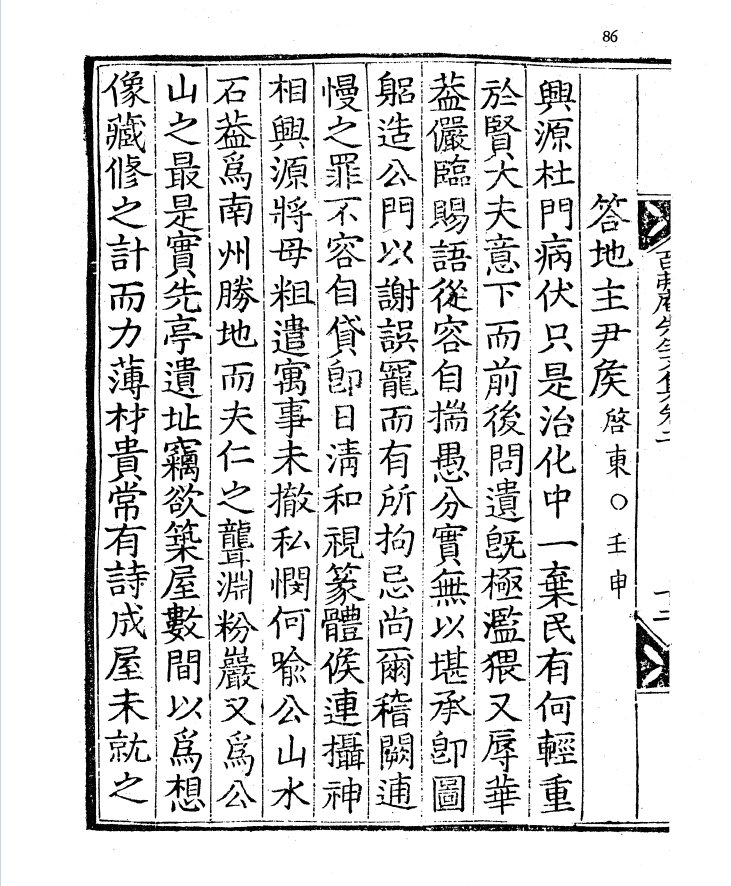 86
百弗庵先生文集卷二
十二
答地主尹矦 啓東○壬申
興源杜門病伏只是治化中一棄民有何輕重
於賢大夫意下而前後問遺旣極濫猥又辱華
葢儼臨賜語從容自揣愚分實無以堪承卽圖
躳造公門以謝誤寵而有所拘忌尙爾稽闕逋
慢之罪不容自貸卽日淸和視篆體候連攝神
相興源將母粗遣寓事未撤私憫何喩公山水
石葢爲南州勝地而夫仁之聾淵粉巖又爲公
山之最是實先亭遺址竊欲築屋數間以爲想
像藏修之計而力薄材貴常有詩成屋未就之